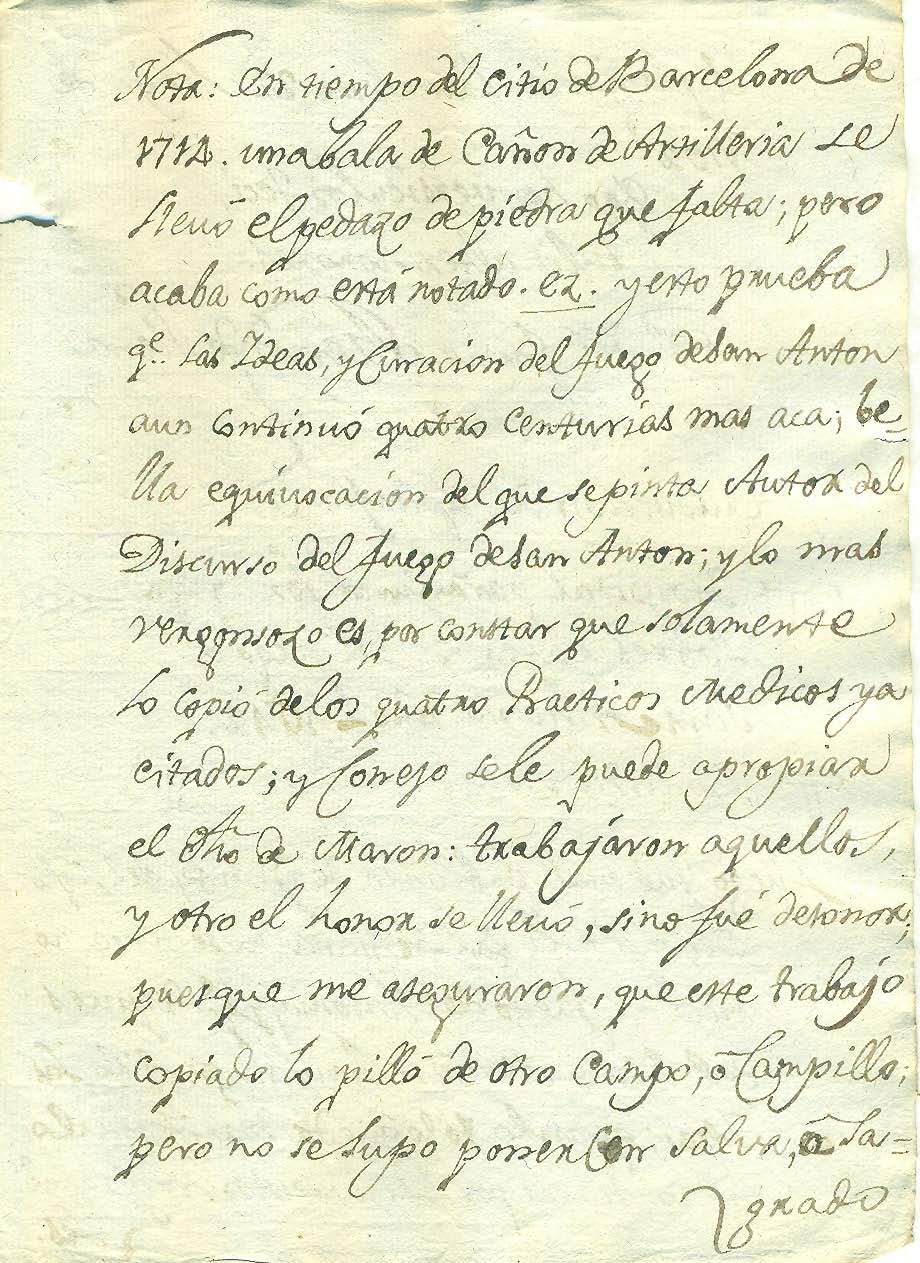 Nota: En tiempo del Citio de Barcelona de
1714. una bala de Cañon de Artilleria se
llevó el pedazo de piedra que falta; pero
acaba como está notado. ez. y esto prueba
qe. las Ideas, y Curacion del fuego de San Anton
aun continuó quatro Centurias mas aca; be=
lla equivocacion del que se pinta Autor del
Discurso del fuego de San Anton; y lo mas
vergonsozo es, por constar que solamente
lo copió de los quatro Practicos Medicos ya
citados; y Conejo se le puede apropiar
el de Maron: trabajáron aquellos,
y otro el honor se llevó, sino fué desonor;
pues que me aseguraron, que este trabajo
copiado lo pilló de otro Campo, ó Campillo;
pero no se supo poner en Salva, ó Sa=
grado